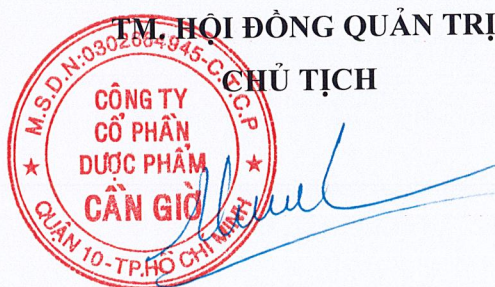 TM. HỘI ĐỒNG QUẢN TRỊ
CHỦ TỊCH
M.S.D.N:0302664945-C.T.C.P
CÔNG TY
CỔ PHẦN
DƯỢC PHẨM
CẦN GIỜ
QUẬN 10-TP.HỒ CHÍ MINH